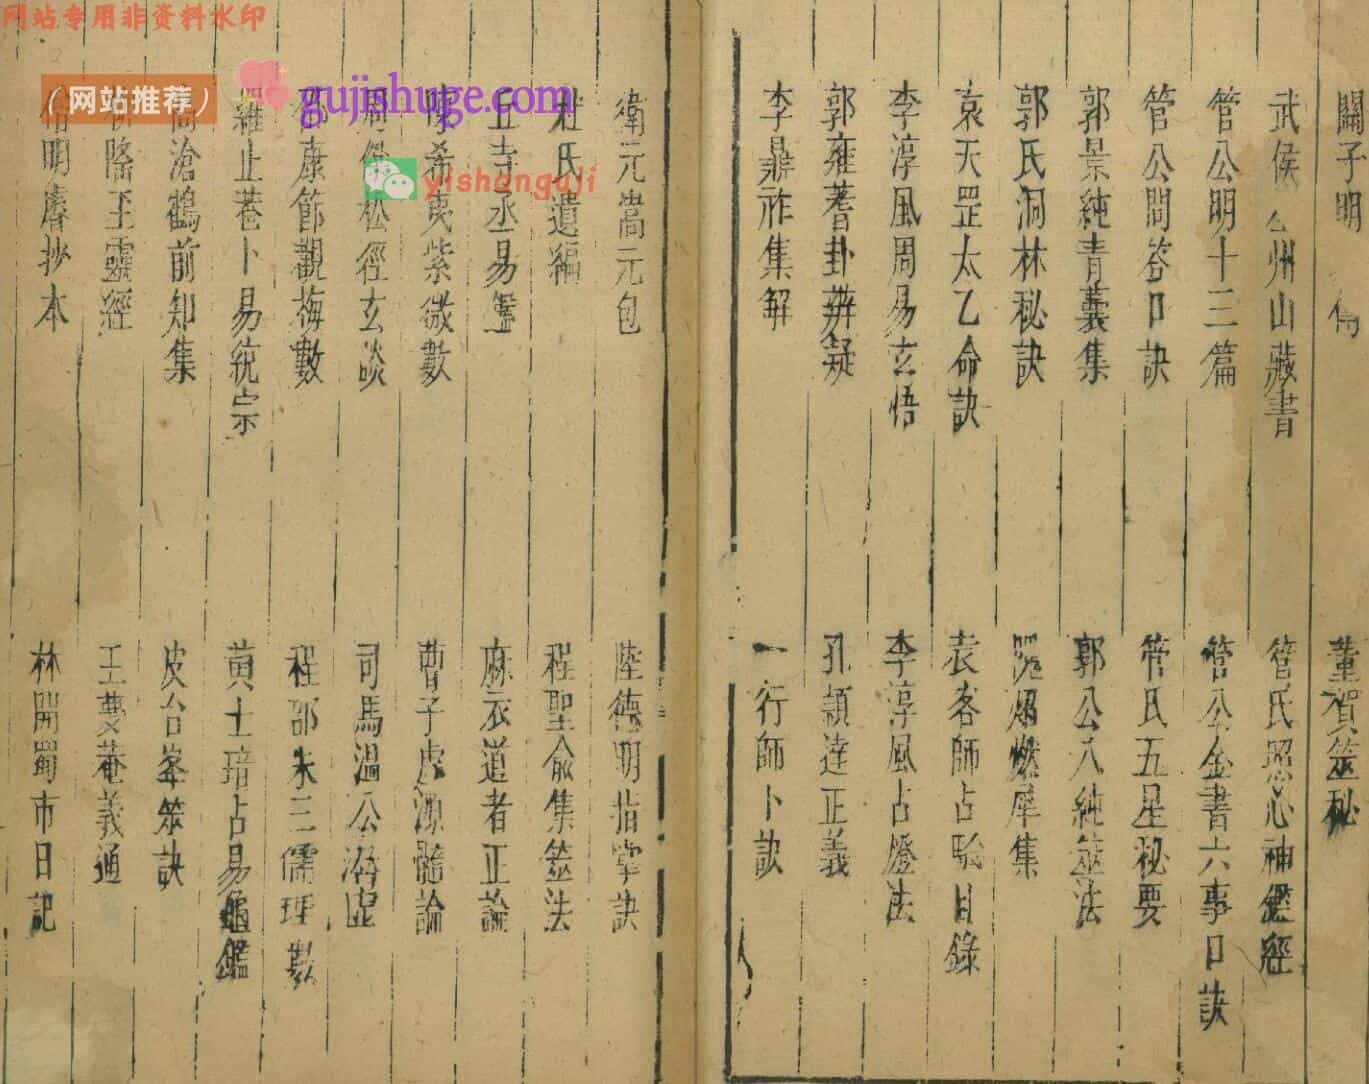 网站专用非资料水印
（网站推荐）
gujishuge.com
yishanguji
關子明 傳
董賀筮秘
武侯 州山藏書
管氏照心神鑑經
管公明十三篇
管公金書六事口訣
管公問答口訣
管氏五星秘要
郭景純青囊集
郭公八純筮法
郭氏洞林秘訣
燃犀集
袁天罡太乙命訣
袁客師占驗目錄
李淳風周易玄悟
李淳風占燈法
郭雍蓍卦辨疑
孔穎達正義
李鼎祚集解
一行師卜訣
衛元嵩元包
陸德明指掌訣
杜氏遺編
程聖俞集筮法
丘寺丞易鑒
麻衣道者正論
陳希夷紫微數
曹子虛源髓論
周 松徑玄談
司馬溫公潛虛
邵康節觀梅數
程邵朱三儒理數
羅止菴卜易統宗
黃士培占易龜鑑
滄鶴前知集
皮台峯筮訣
隆至靈經
王 菴義通
明睿抄本
林開蜀市日記